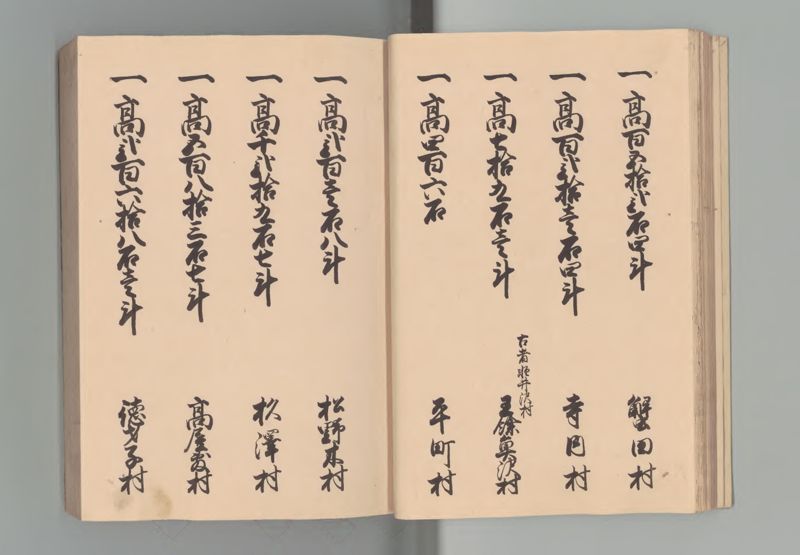 一高百五拾弐石四斗 蟹田村
一高百弐拾壱石四斗 寺内村
一高七拾九石壱斗
村
一高四百六石 平町村
一高弐百壱石八斗 松野木村
一高千弐拾九石七斗 杉澤村
一高五百八拾三石七斗 高屋敷村
一高弐百六拾八石壱斗 徳才子村